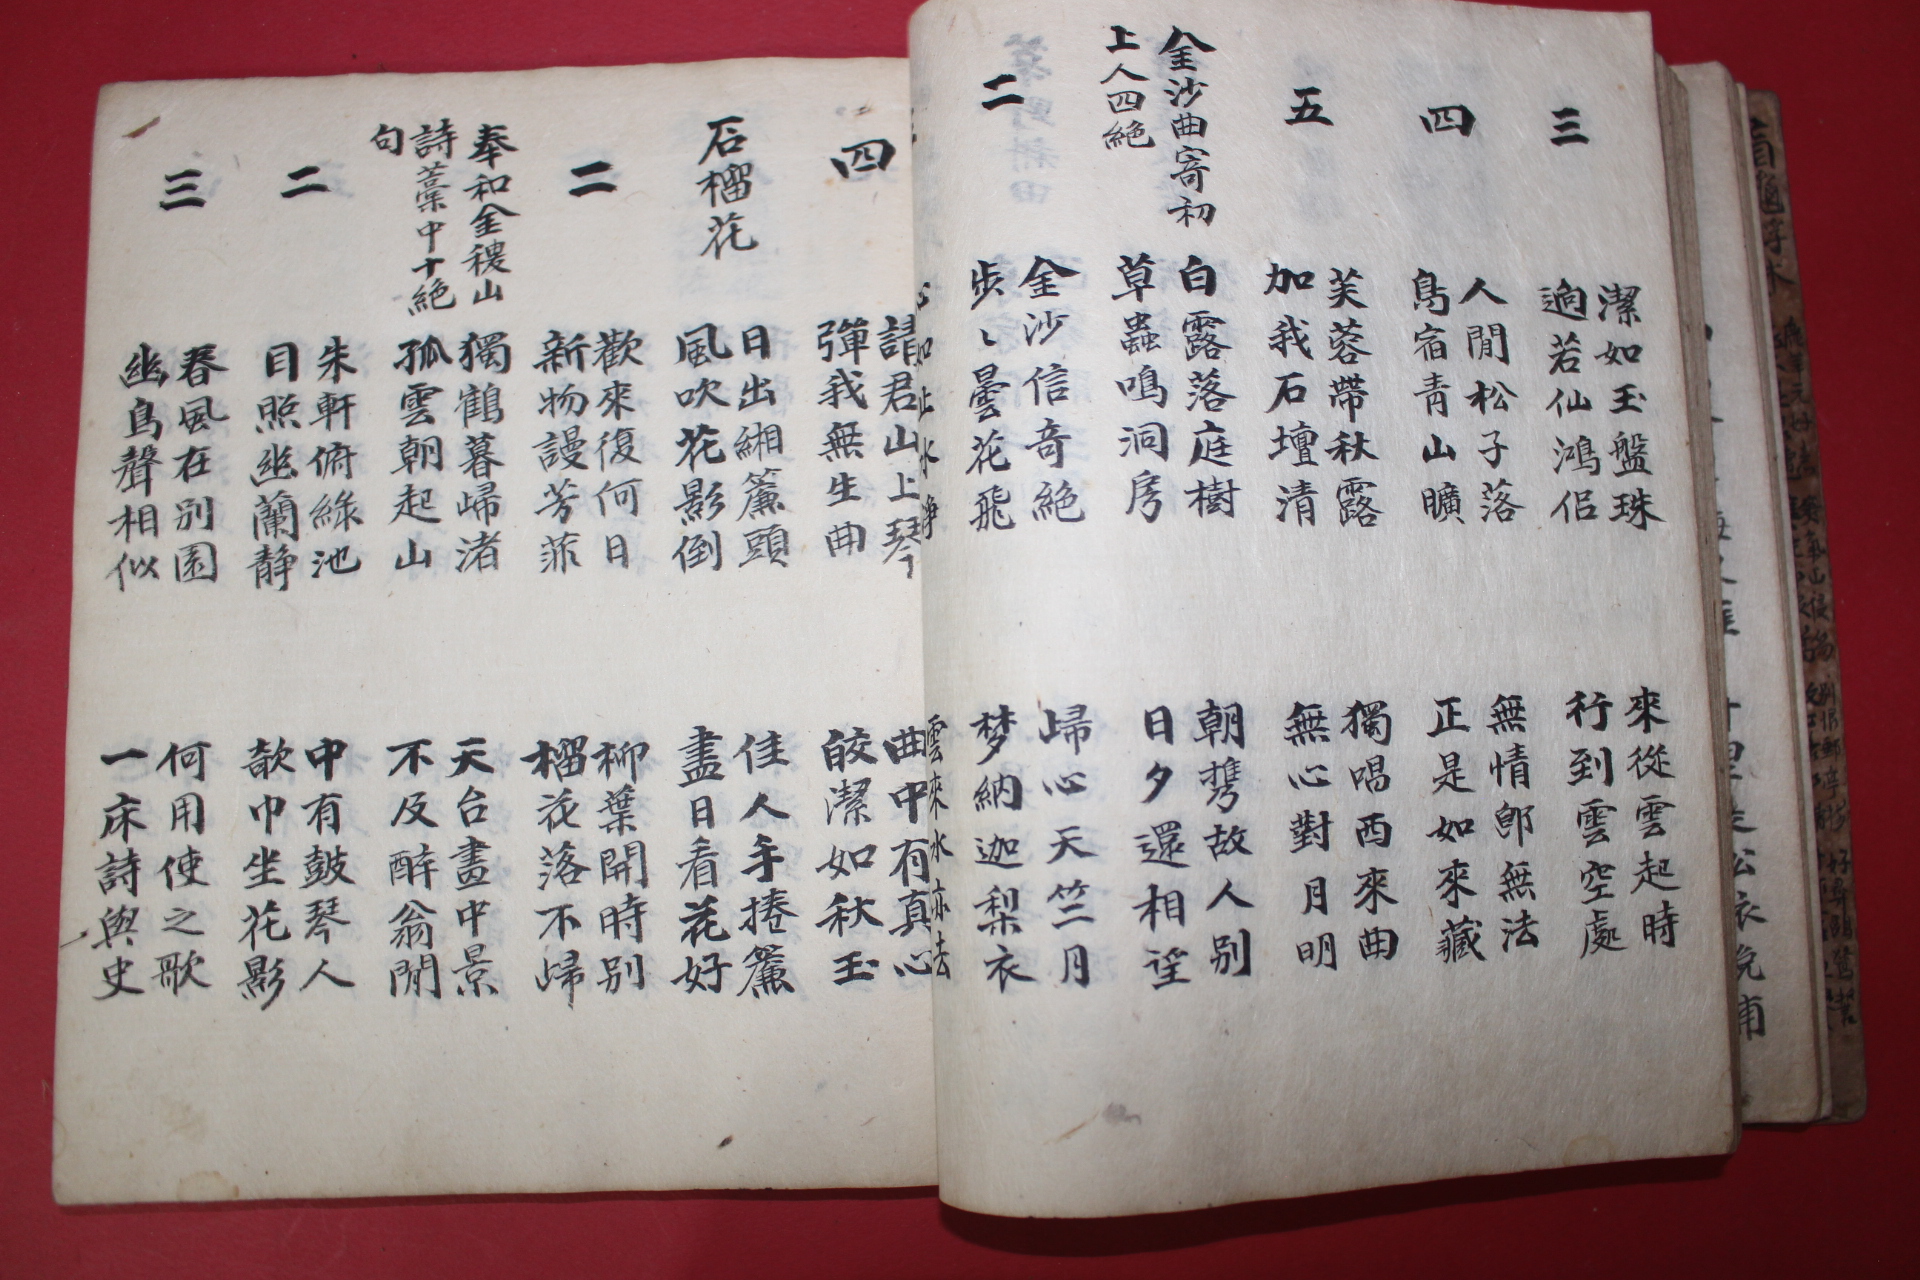 三
潔如玉盤珠
逈若仙鴻侶
來從雲起時
行到雲空處
四
人閒松子落
鳥宿青山曠
無情卽無法
正是如來藏
五
芙蓉帶秋露
加我石壇清
獨唱西來曲
無心對月明
金沙曲寄初
上人四絶
白露落庭樹
草蟲鳴洞房
朝携故人別
日夕還相望
二
金沙信奇絶
步〻曇花飛
歸心天竺月
梦納迦梨衣
四
請君山上琴
彈我無生曲
曲中有真心
皎潔如秋玉
石榴花
日出緗簾頭
風吹花影倒
佳人手捲簾
盡日看花好
二
歡來復何日
新物謾芳菲
柳葉開時別
榴花落不歸
奉和金稷山
詩藁中十絶
句
獨鶴暮歸渚
孤雲朝起山
天台畫中景
不及醉翁閒
二
朱軒俯綠池
目照幽蘭靜
中有鼓琴人
欹巾坐花影
三
春風在別園
幽鳥聲相似
何用使之歌
一床詩與史